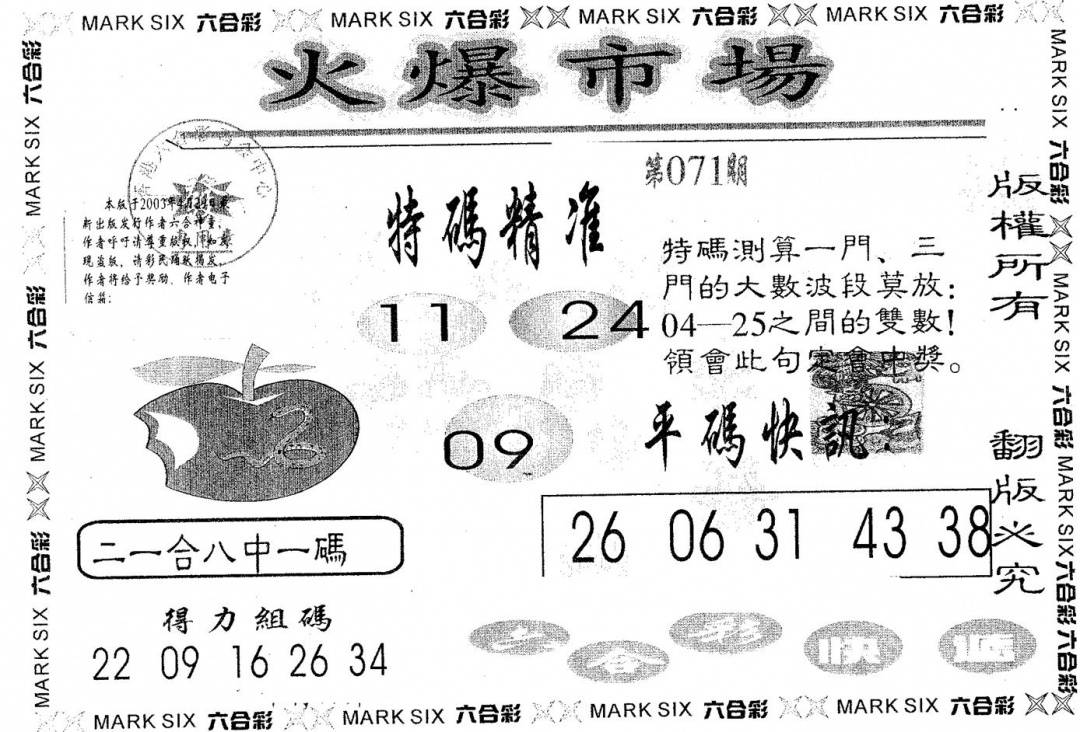 MARK SIX 六合彩 MARK SIX 六合彩 MARK SIX 六合彩 MARK SIX 六合彩
火爆市場
第071期
本版于2003年
新出版发行作者六合神童,
作者呼吁请尊重版权,如发
现盗版,请彩民踊跃揭发,
作者将给予奖励. 作者电子
信箱:
特碼精准
11 24
09
特碼測算一門、三
門的大數波段莫放:
04—25之間的雙數!
領會此句定會中獎。
平碼快訊:
26 06 31 43 38
二一合八中一碼
得力組碼
22 09 16 26 34
六合彩快遞
版權所有
翻版必究
MARK SIX 六合彩 MARK SIX 六合彩 MARK SIX 六合彩
MARK SIX 六合彩 MARK SIX 六合彩 MARK SIX 六合彩 六合彩
MARK SIX 六合彩 MARK SIX 六合彩 MARK SIX 六合彩 MARK SIX 六合彩